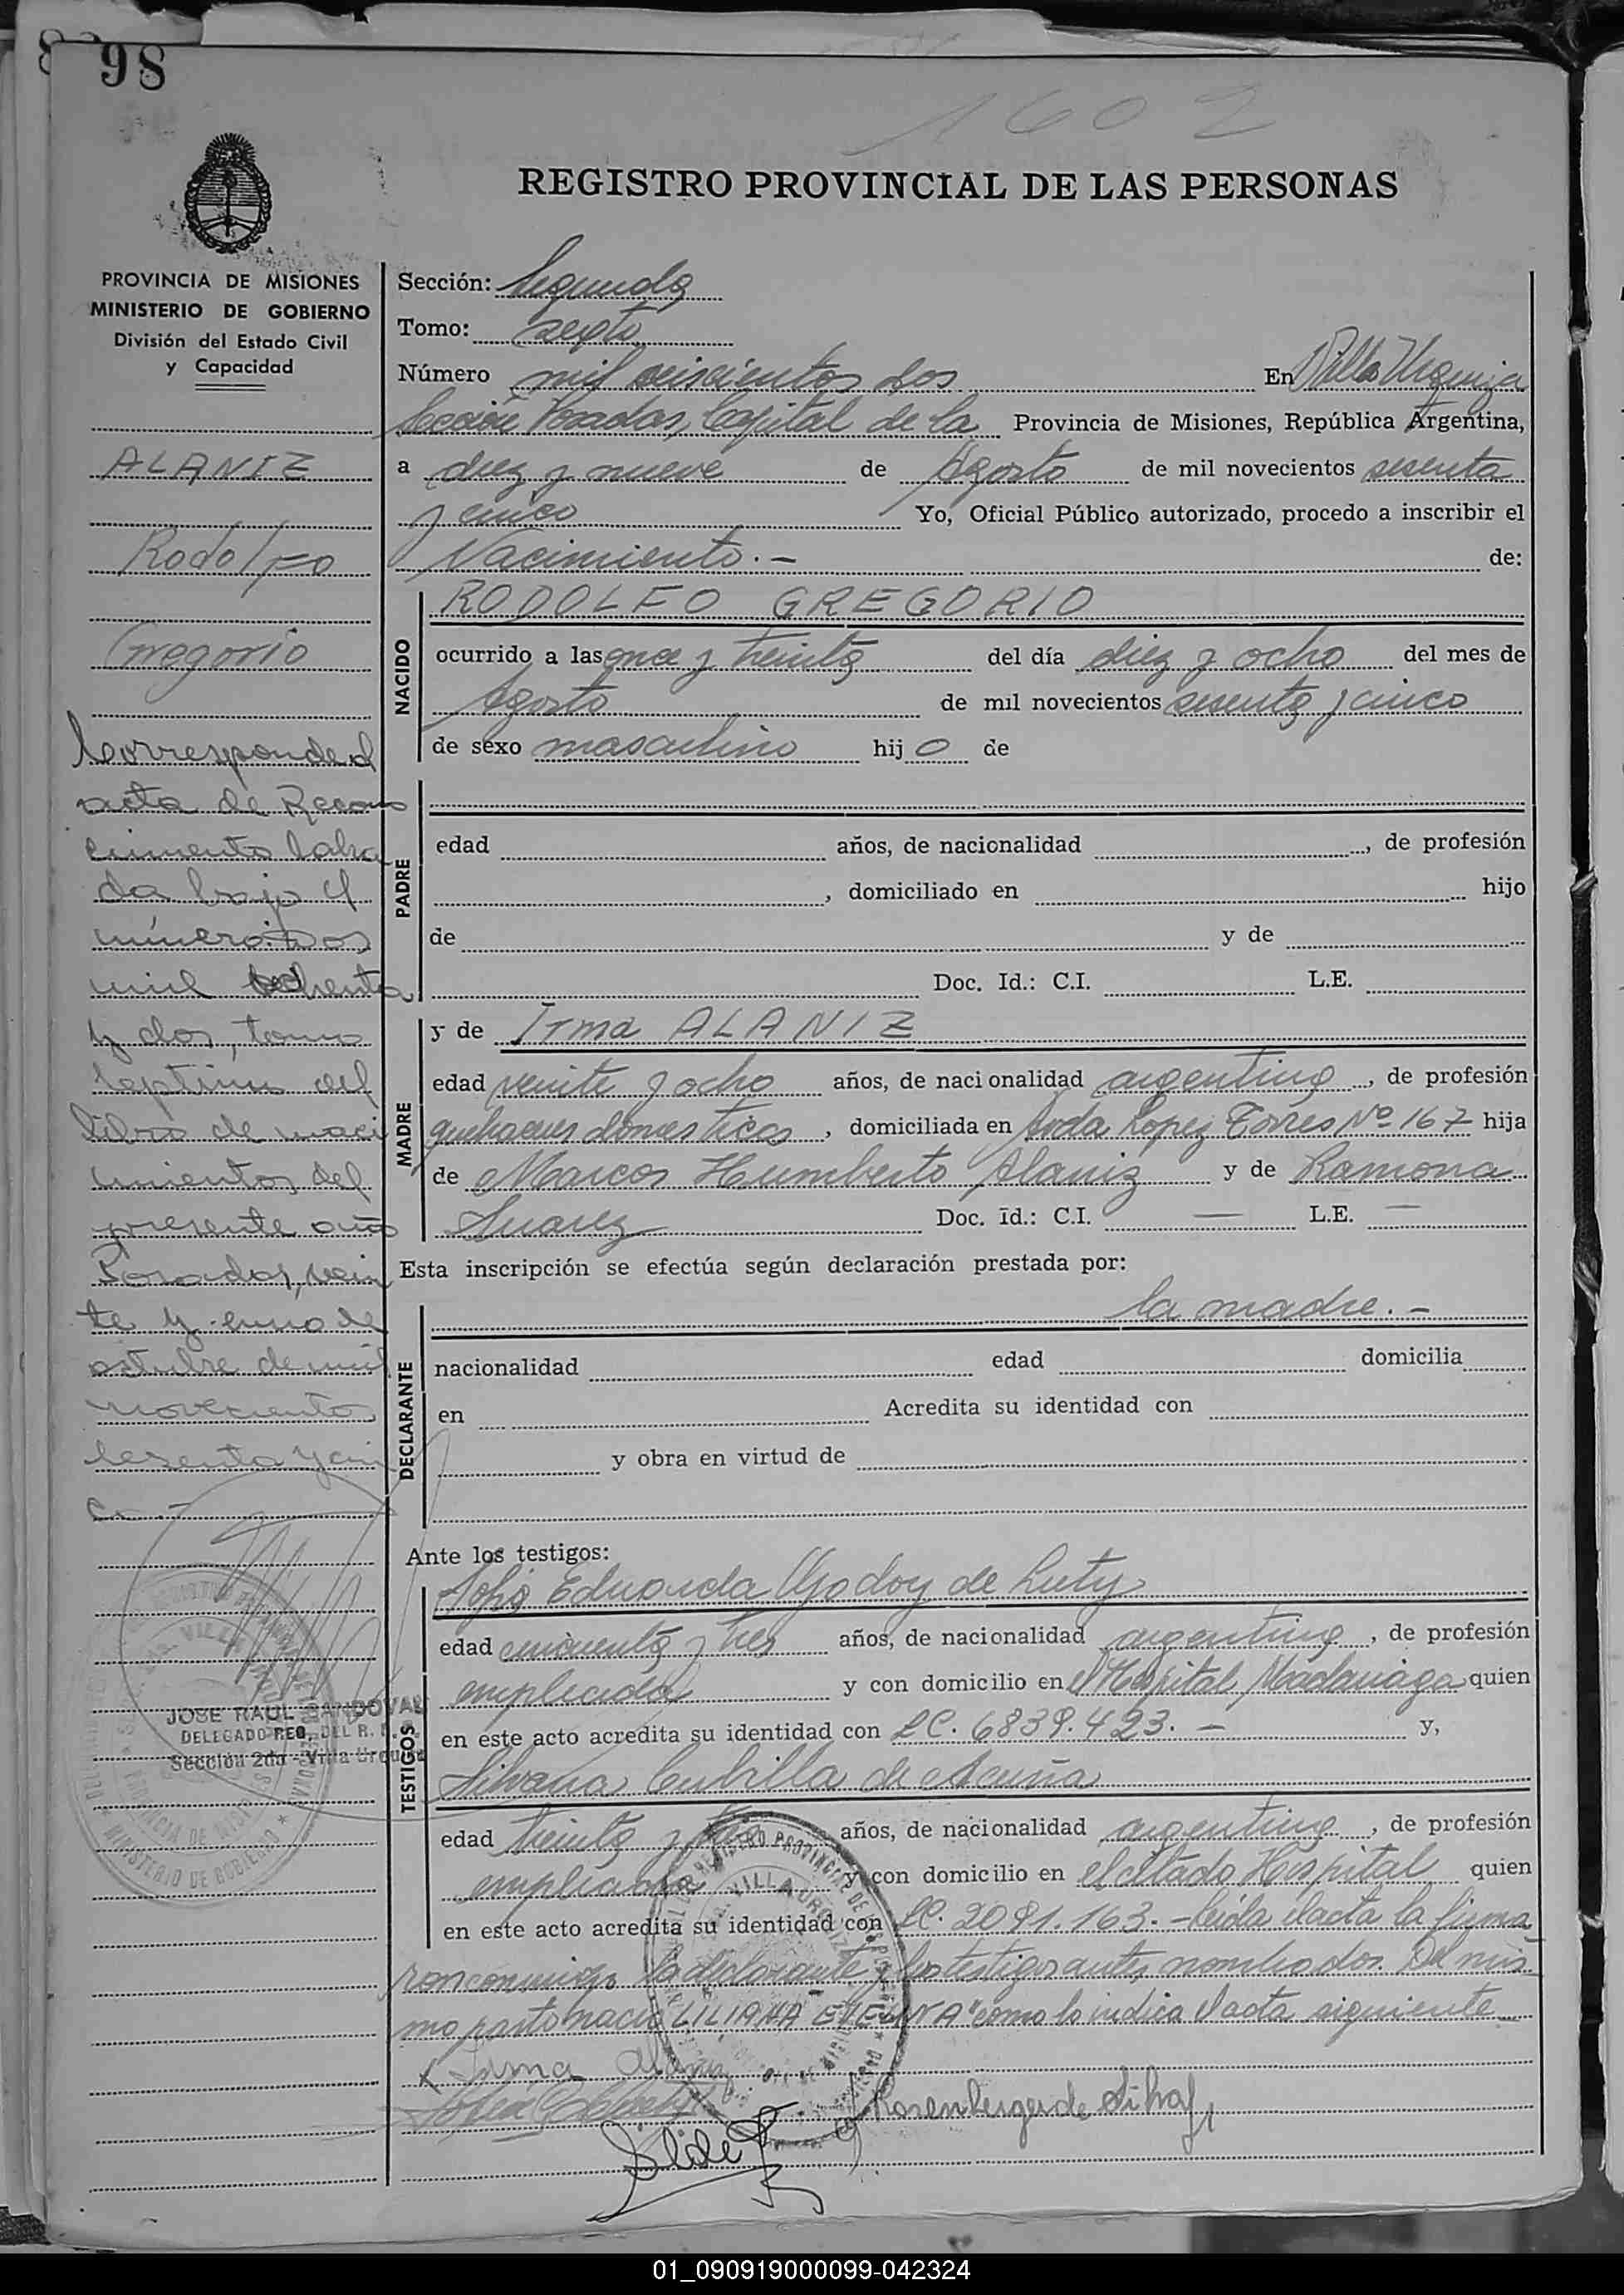 98
1602
REGISTRO PROVINCIAL DE LAS PERSONAS
PROVINCIA DE MISIONES
MINISTERIO DE GOBIERNO
División del Estado Civil
y Capacidad
ALANIZ
Rodolfo
Gregorio
Corresponde al
acta de Recono
cimiento labra
da bajo el
número: Dos
mil ochenta
y dos, tomo
septimo del
libro de naci
mientos del
presente año
Posadas, vein
te y uno de
octubre de mil
novecientos
sesenta y cin
co.-
JOSE RAUL SANDOVAL
DELEGADO REG. DEL R. P.
Sección 2da - Villa Urquiza
Sección: Segunda
Tomo: sexto
Número mil seiscientos dos En Villa Urquiza
Sección Posadas, Capital de la Provincia de Misiones, República Argentina,
a diez y nueve de Agosto de mil novecientos sesenta
y cinco Yo, Oficial Público autorizado, procedo a inscribir el
Nacimiento.- de:
NACIDO
RODOLFO GREGORIO
ocurrido a las once y treinta del día diez y ocho del mes de
Agosto de mil novecientos sesenta y cinco
de sexo masculino hijo de
PADRE
edad años, de nacionalidad , de profesión
, domiciliado en hijo
de y de
Doc. Id.: C.I. L.E.
MADRE
y de Irma ALANIZ
edad veinte y ocho años, de nacionalidad argentina, de profesión
quehaceres domesticos, domiciliada en Avda Lopez Torres Nº 167 hija
de Marcos Humberto Alaniz y de Ramona
Suarez Doc. Id.: C.I. — L.E. —
Esta inscripción se efectúa según declaración prestada por:
DECLARANTE
la madre.-
nacionalidad edad domicilia
en Acredita su identidad con
y obra en virtud de
Ante los testigos:
TESTIGOS
Sofia Eduarda Godoy de Luty
edad cincuenta y tres años, de nacionalidad argentina, de profesión
empleada y con domicilio en el Hospital Madariaga quien
en este acto acredita su identidad con LC. 6839.423.- y,
Silvana Cubilla de Acuña
edad treinta y años, de nacionalidad argentina, de profesión
empleada y con domicilio en el citado Hospital quien
en este acto acredita su identidad con LC. 2091.163.- Leida el acta la firma
ron conmigo la declarante y los testigos antes nombrados. Del mis
mo parto nació "LILIANA ETELVINA" como lo indica el acta siguiente
x Irma Alaniz
Rosenberger de Silva
01_090919000099-042324